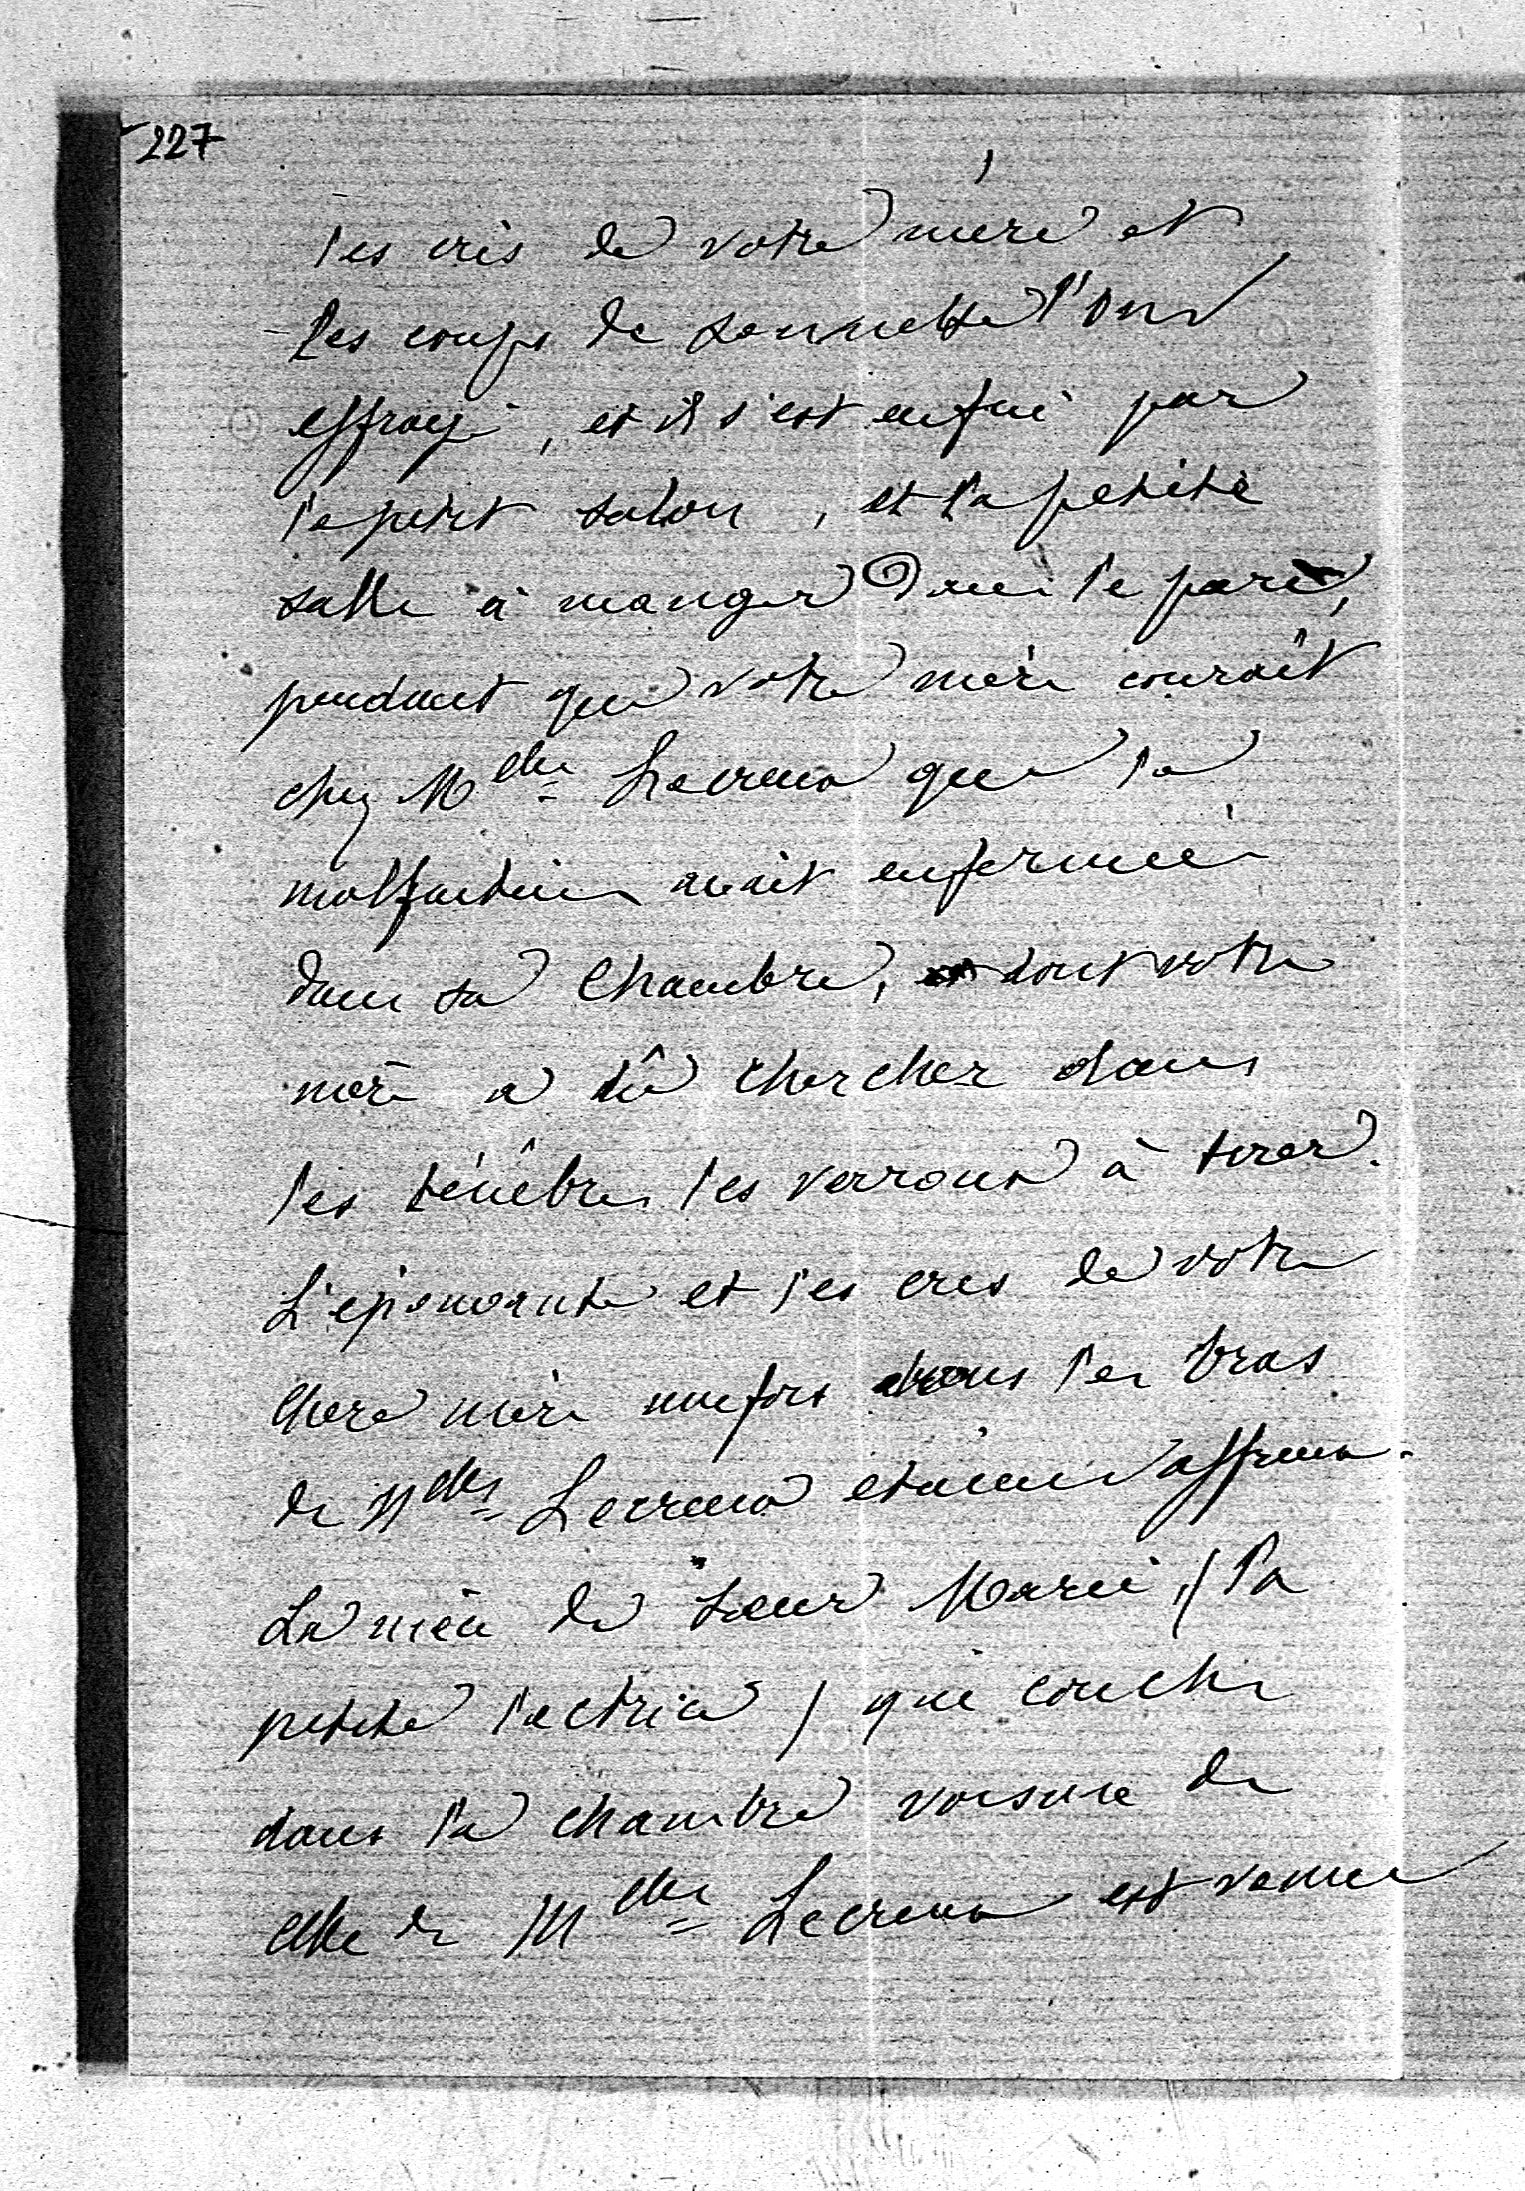 227
les cris de votre mère et
les coups de sonnette l'ont
effrayé, et il s'est enfui par
le petit salon, et la petite
salle à manger dans le parc,
pendant que votre mère courait
chez Mlle Lecreux que la
malfaiteur avait enfermée
dans sa chambre, dont votre
mère a dû chercher dans
les ténèbres les verroux à tirer.
L'épouvante et les cris de votre
chère mère une fois dans les bras
de Mlle Lecreux étaient affreux.
La nièce de Soeur Marie, (la
petite lectrice) qui couche
dans la chambre voisine de
celle de Mlle Lecreux est venue